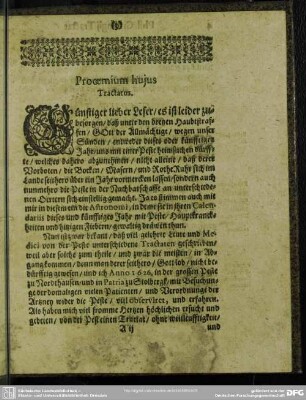 Prooemium hujus
Tractatus.
Günstiger lieber Leser / es ist leider zu-
besorgen / daß unter den dreyen Haubtstraf-
fen / GOtt der Allmächtige / wegen unser
Sünden / entweder dieses oder künfftiges
Jahr uns mit einer Peste heimsuchen
te / welches dahero abzunehmen / nicht alleine / daß deren
Vorboten / die Bocken / Masern / und RotheRuhr sich im
Lande seithero über ein Jahr vormercken lassen / sondern auch
nunmehro die Peste in der Nachbarschafft an unterschiede-
nen Örtern sich einstellig gemacht. Ja es stimmen auch mit
mir in diesem ein die Astronomi, in deme sie in ihren Calen-
dariis dieses und künfftiges Jahr mit Peste / Hauptkranck-
heiten und hitzigen Fiebern / gewaltig dräuen thun.
Nun ist zwar bekant / daß viel gelehrte Leute und Me-
dici von der Peste unterschiedene Tractaten geschrieben /
weil aber solche zum theile / und zwar die meisten / in Ab-
gang kommen / denn man derer seithero / Gott lob / nicht be-
dürfftig gewesen / und ich Anno 1626, in der grossen Peste
zu Northausen / und in Patria zu Stolbergk / mit Besuchun-
ge der domaligen vielen Patienten / und Verordnunge der
Artzney wider die Peste / viel observiret, und erfahren.
Als haben mich viel fromme Hertzen höchlichen ersucht und
gebeten / von der Pest einen Tractat / ohne weitläufftigkeit /
A ij
und